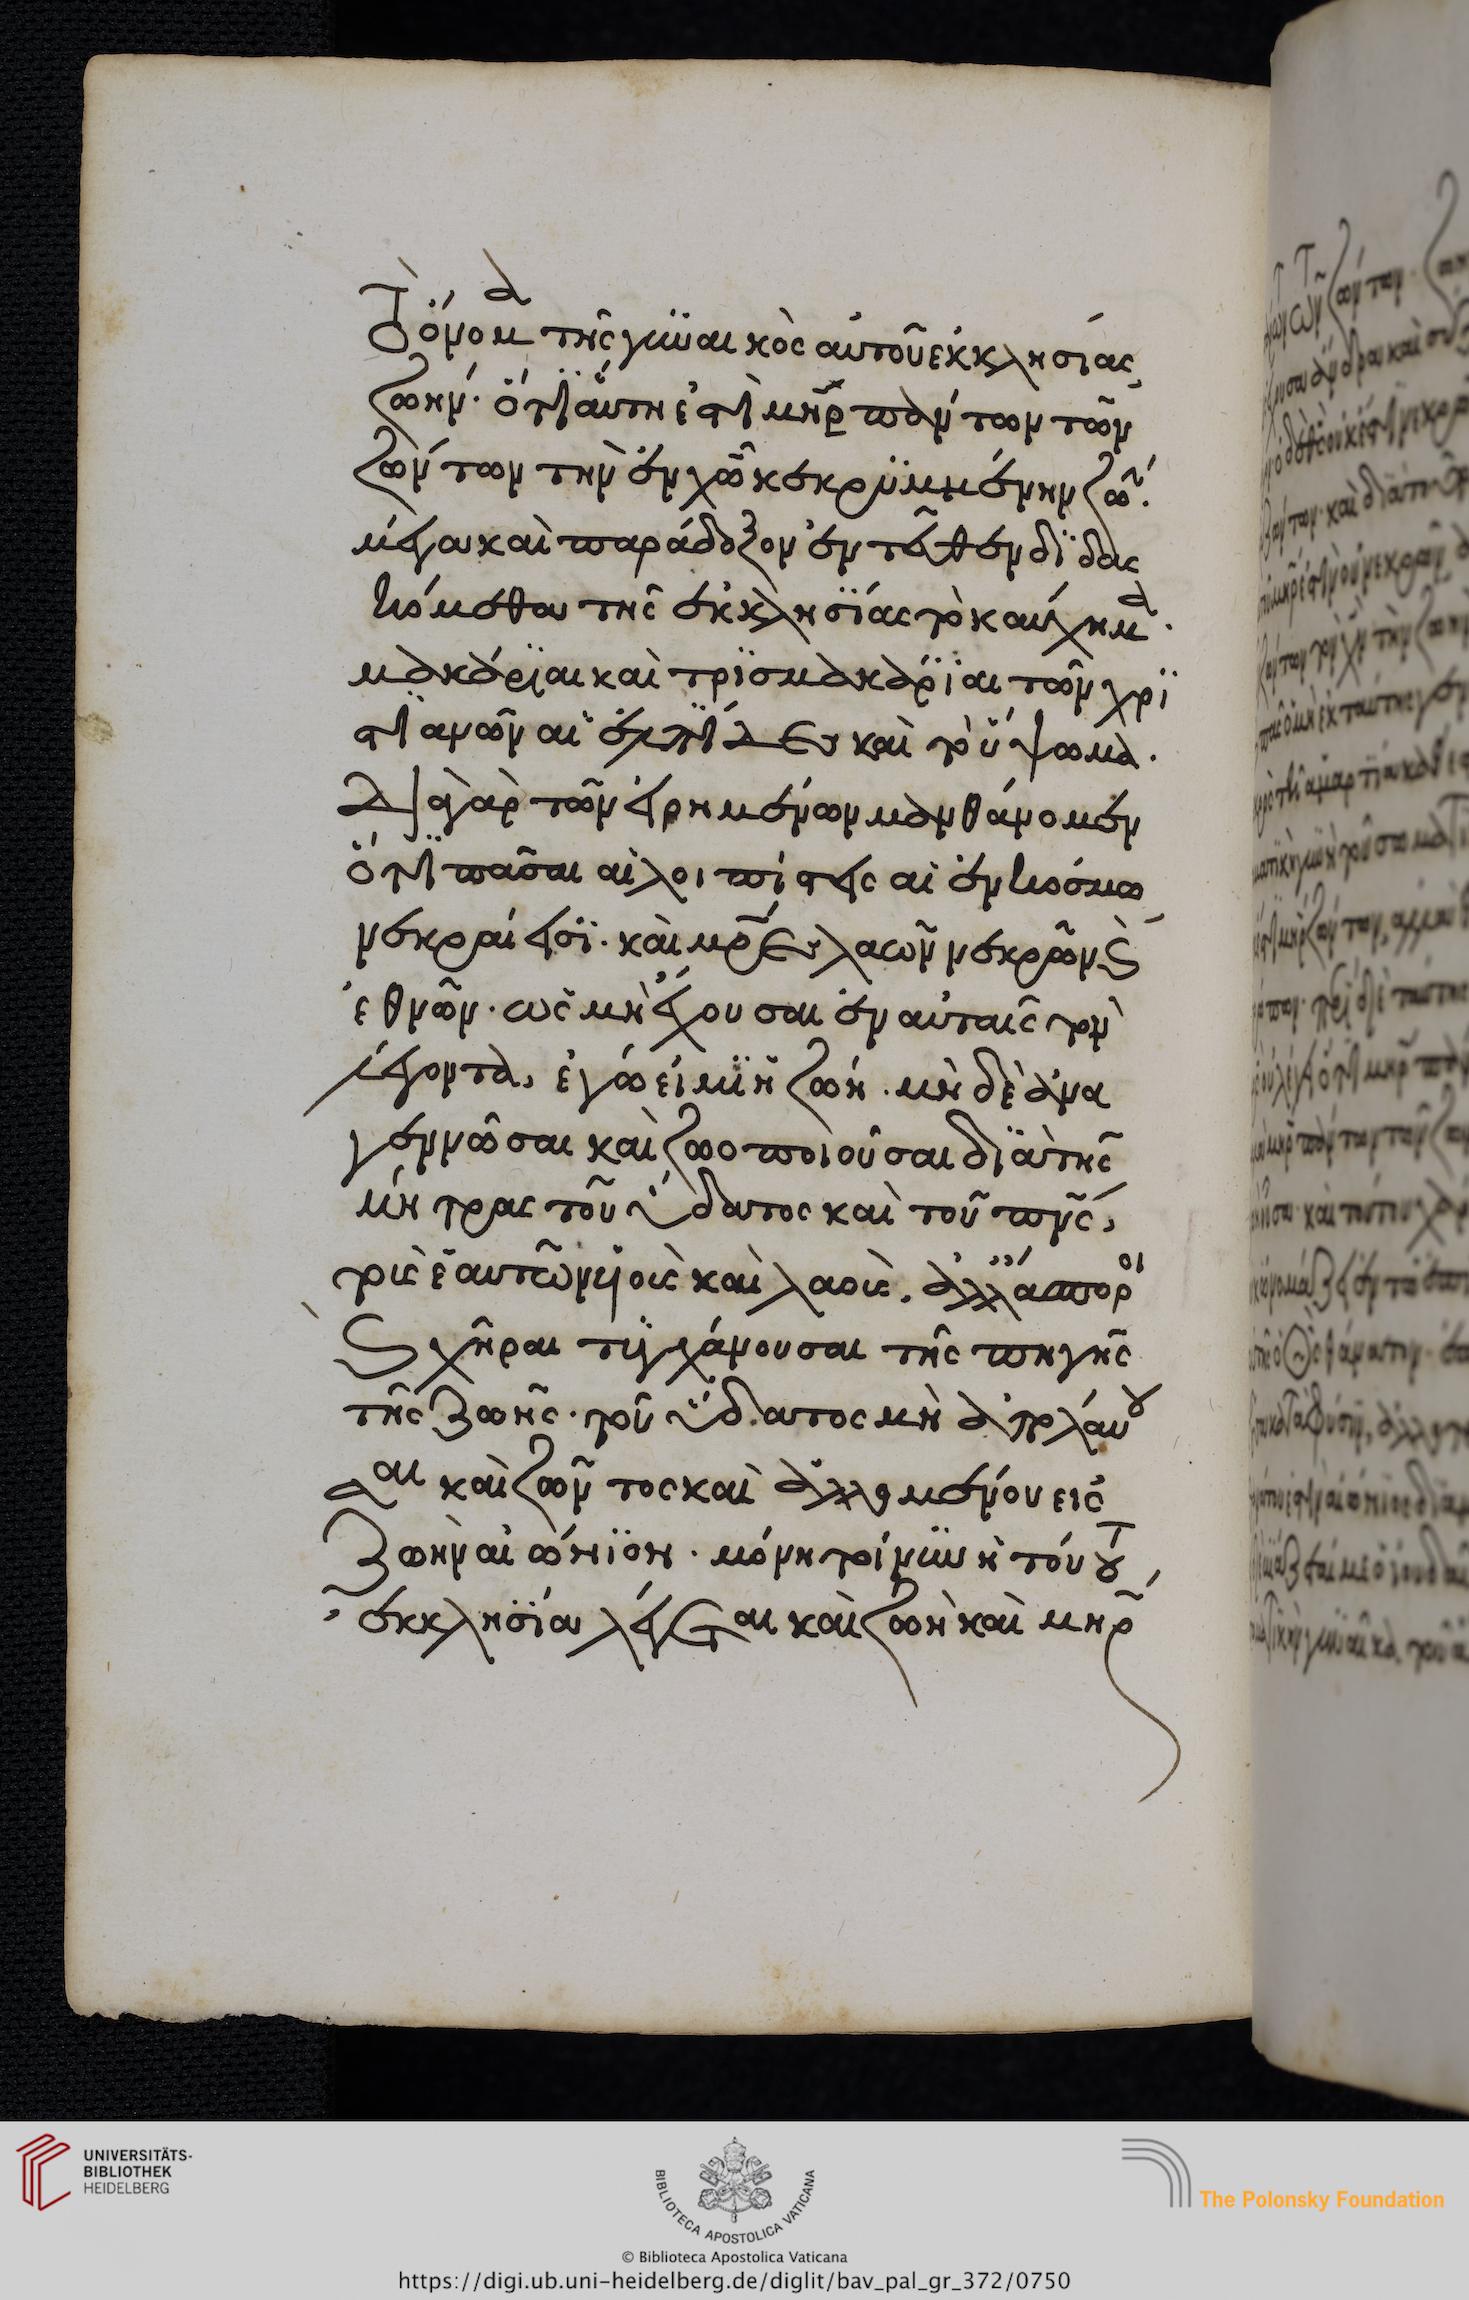 Τὸ ὄνομα τῆς γυναικὸς αὐτοῦ ἐκκλησίας
ζωήν. ὅτι αὕτη ἐστὶ μηρ πάντων τῶν
ζώντων τὴν ἐν χω κεκρυμμένην ζω.
μέγα καὶ παράδοξον ἐντεῦθεν διδας
κόμεθα τῆς ἐκκλησίας τὸ καύχημα.
μακάριαι καὶ τρισμακάριαι τῶν χρι
στιανῶν αἱ ἐλπίδες καὶ τὸ ὕψωμα.
Διὰ γὰρ τῶν εἰρημένων μανθάνομεν
ὅτι πᾶσαι αἱ λοι πίστεις αἱ ἐν κόσμω
νεκραί εἰσι. καὶ μρες λαῶν νεκρῶν καὶ
ἐθνῶν. ὡς μὴ ἔχουσαι ἐν αὐταῖς τὸν
λέγοντα, ἐγώ εἰμι ἡ ζωή. μὴ δὲ ἀνα
γεννῶσαι καὶ ζωοποιοῦσαι διὰ τῆς
μήτρας τοῦ ὕδατος καὶ τοῦ πνς,
τοὺς ἑαυτῶν υἱοὺς καὶ λαούς. ἀλλὰ ἄποροι
καὶ χῆραι τυγχάνουσαι τῆς πηγῆς
τῆς ζωῆς. τοῦ ὕδατος μὴ ἀπολαύου
σαι καὶ ζῶντος καὶ ἀλλομένου εἰς
ζωὴν αἰώνιον. μόνη τοίνυν ἡ τούτου
ἐκκλησία λέγεται καὶ ζωὴ καὶ μηρ
UNIVERSITÄTS-
BIBLIOTHEK
HEIDELBERG
BIBLIOTECA APOSTOLICA VATICANA
The Polonsky Foundation
© Biblioteca Apostolica Vaticana
https://digi.ub.uni-heidelberg.de/diglit/bav_pal_gr_372/0750